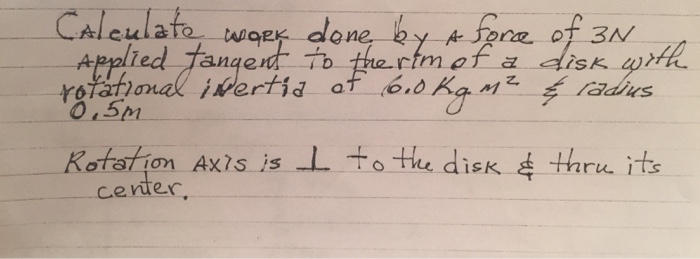 Calculate work done by A force of 3N
Applied tangent to the rim of a disk with
rotational inertia of 6.0 Kg m² & radius
0.5m
Rotation Axis is ⊥ to the disk & thru its
center.